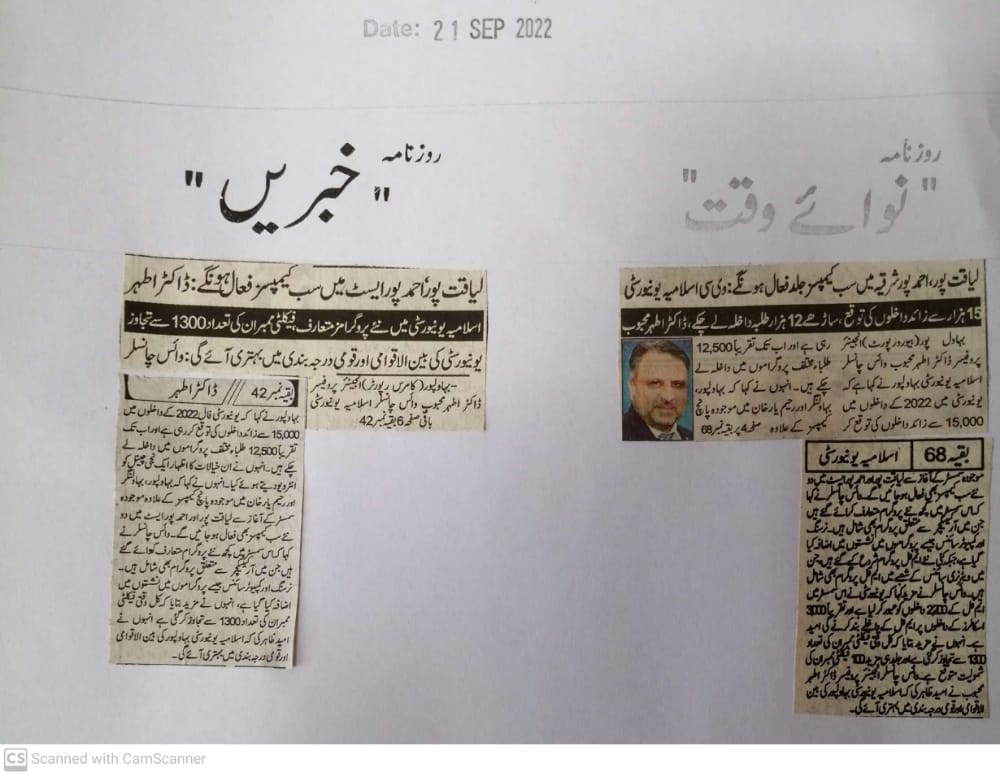 Date: 21 SEP 2022
روزنامہ
"خبریں"
لیاقت پور، احمد پور ایسٹ میں سب کیمپسز فعال ہونگے: ڈاکٹر اطہر
اسلامیہ یونیورسٹی میں نئے پروگرامز متعارف، فیکلٹی ممبران کی تعداد 1300 سے تجاوز
یونیورسٹی کی بین الاقوامی اور قومی درجہ بندی میں بہتری آئے گی: وائس چانسلر
بہاولپور (کامرس رپورٹر) انجینئر پروفیسر
ڈاکٹر اطہر محبوب وائس چانسلر اسلامیہ یونیورسٹی
باقی صفحہ 6 بقیہ نمبر 42
بقیہ نمبر 42 /// ڈاکٹر اطہر
بہاولپور نے کہا کہ یونیورسٹی فال 2022 کے داخلوں میں
15,000 سے زائد داخلوں کی توقع کر رہی ہے اور اب تک
تقریباً 12,500 طلباء مختلف پروگراموں میں داخلہ لے
چکے ہیں۔ انہوں نے ان خیالات کا اظہار ایک نجی چینل کو
انٹرویو دیتے ہوئے کیا۔ انہوں نے کہا کہ بہاولپور، بہاولنگر
اور رحیم یار خان میں موجودہ پانچ کیمپسز کے علاوہ موجودہ
سمسٹر کے آغاز سے لیاقت پور اور احمد پور ایسٹ میں دو
نئے سب کیمپسز بھی فعال ہو جائیں گے۔ وائس چانسلر نے
کہا کہ اس سمسٹر میں کچھ نئے پروگرام متعارف کروائے گئے
ہیں جن میں آرکیٹیکچر سے متعلق پروگرام بھی شامل ہیں۔
نرسنگ اور کمپیوٹر سائنس جیسے پروگراموں میں نشستوں میں
اضافہ کیا گیا ہے، انہوں نے مزید بتایا کہ کل وقتی فیکلٹی
ممبران کی تعداد 1300 سے تجاوز کر گئی ہے انہوں نے
امید ظاہر کی کہ اسلامیہ یونیورسٹی بہاولپور کی بین الاقوامی
اور قومی درجہ بندی میں بہتری آئے گی۔
روزنامہ
"نوائے وقت"
لیاقت پور، احمد پور شرقیہ میں سب کیمپسز جلد فعال ہونگے: وی سی اسلامیہ یونیورسٹی
15 ہزار سے زائد داخلوں کی توقع، ساڑھے 12 ہزار طلبہ داخلہ لے چکے، ڈاکٹر اطہر محبوب
بہاول پور (بیورو رپورٹ) انجینئر
پروفیسر ڈاکٹر اطہر محبوب وائس چانسلر
اسلامیہ یونیورسٹی بہاولپور نے کہا ہے کہ
یونیورسٹی میں 2022 کے داخلوں میں
15,000 سے زائد داخلوں کی توقع کر
رہی ہے اور اب تک تقریباً 12,500
طلباء مختلف پروگراموں میں داخلہ لے
چکے ہیں۔ انہوں نے کہا کہ بہاولپور،
بہاولنگر اور رحیم یار خان میں موجودہ پانچ
کیمپسز کے علاوہ صفحہ 4 پر بقیہ نمبر 68
بقیہ 68 اسلامیہ یونیورسٹی
موجودہ سمسٹر کے آغاز سے لیاقت پور اور احمد پور ایسٹ میں دو
نئے سب کیمپسز بھی فعال ہو جائیں گے۔ وائس چانسلر نے کہا
کہ اس سمسٹر میں کچھ نئے پروگرام متعارف کرائے گئے ہیں
جن میں آرکیٹیکچر سے متعلق پروگرام بھی شامل ہیں۔ نرسنگ
اور کمپیوٹر سائنس جیسے پروگراموں میں نشستوں میں اضافہ کیا
گیا ہے جبکہ کئی نئے ایم فل پروگرام شروع کیے گئے ہیں، جن
میں ویٹرنری سائنس کے شعبے میں ایم فل پروگرام بھی شامل
ہیں۔ وائس چانسلر نے مزید کہا کہ یونیورسٹی نے اس سمسٹر میں
ایم فل کے 2,200 داخلوں کو عبور کر لیا ہے اور تقریباً 3000
اسکالرز کے داخلوں پر ایم فل کے داخلے بند کرنے کی امید
ہے۔ انہوں نے مزید بتایا کہ کل وقتی فیکلٹی ممبران کی تعداد
1300 سے تجاوز کر گئی ہے اور جلد ہی مزید 100 فیکلٹی ممبران کی
شمولیت متوقع ہے۔ وائس چانسلر انجینئر پروفیسر ڈاکٹر اطہر
محبوب نے امید ظاہر کی کہ اسلامیہ یونیورسٹی بہاولپور کی بین
الاقوامی اور قومی درجہ بندی میں بہتری آئے گی۔
CS Scanned with CamScanner